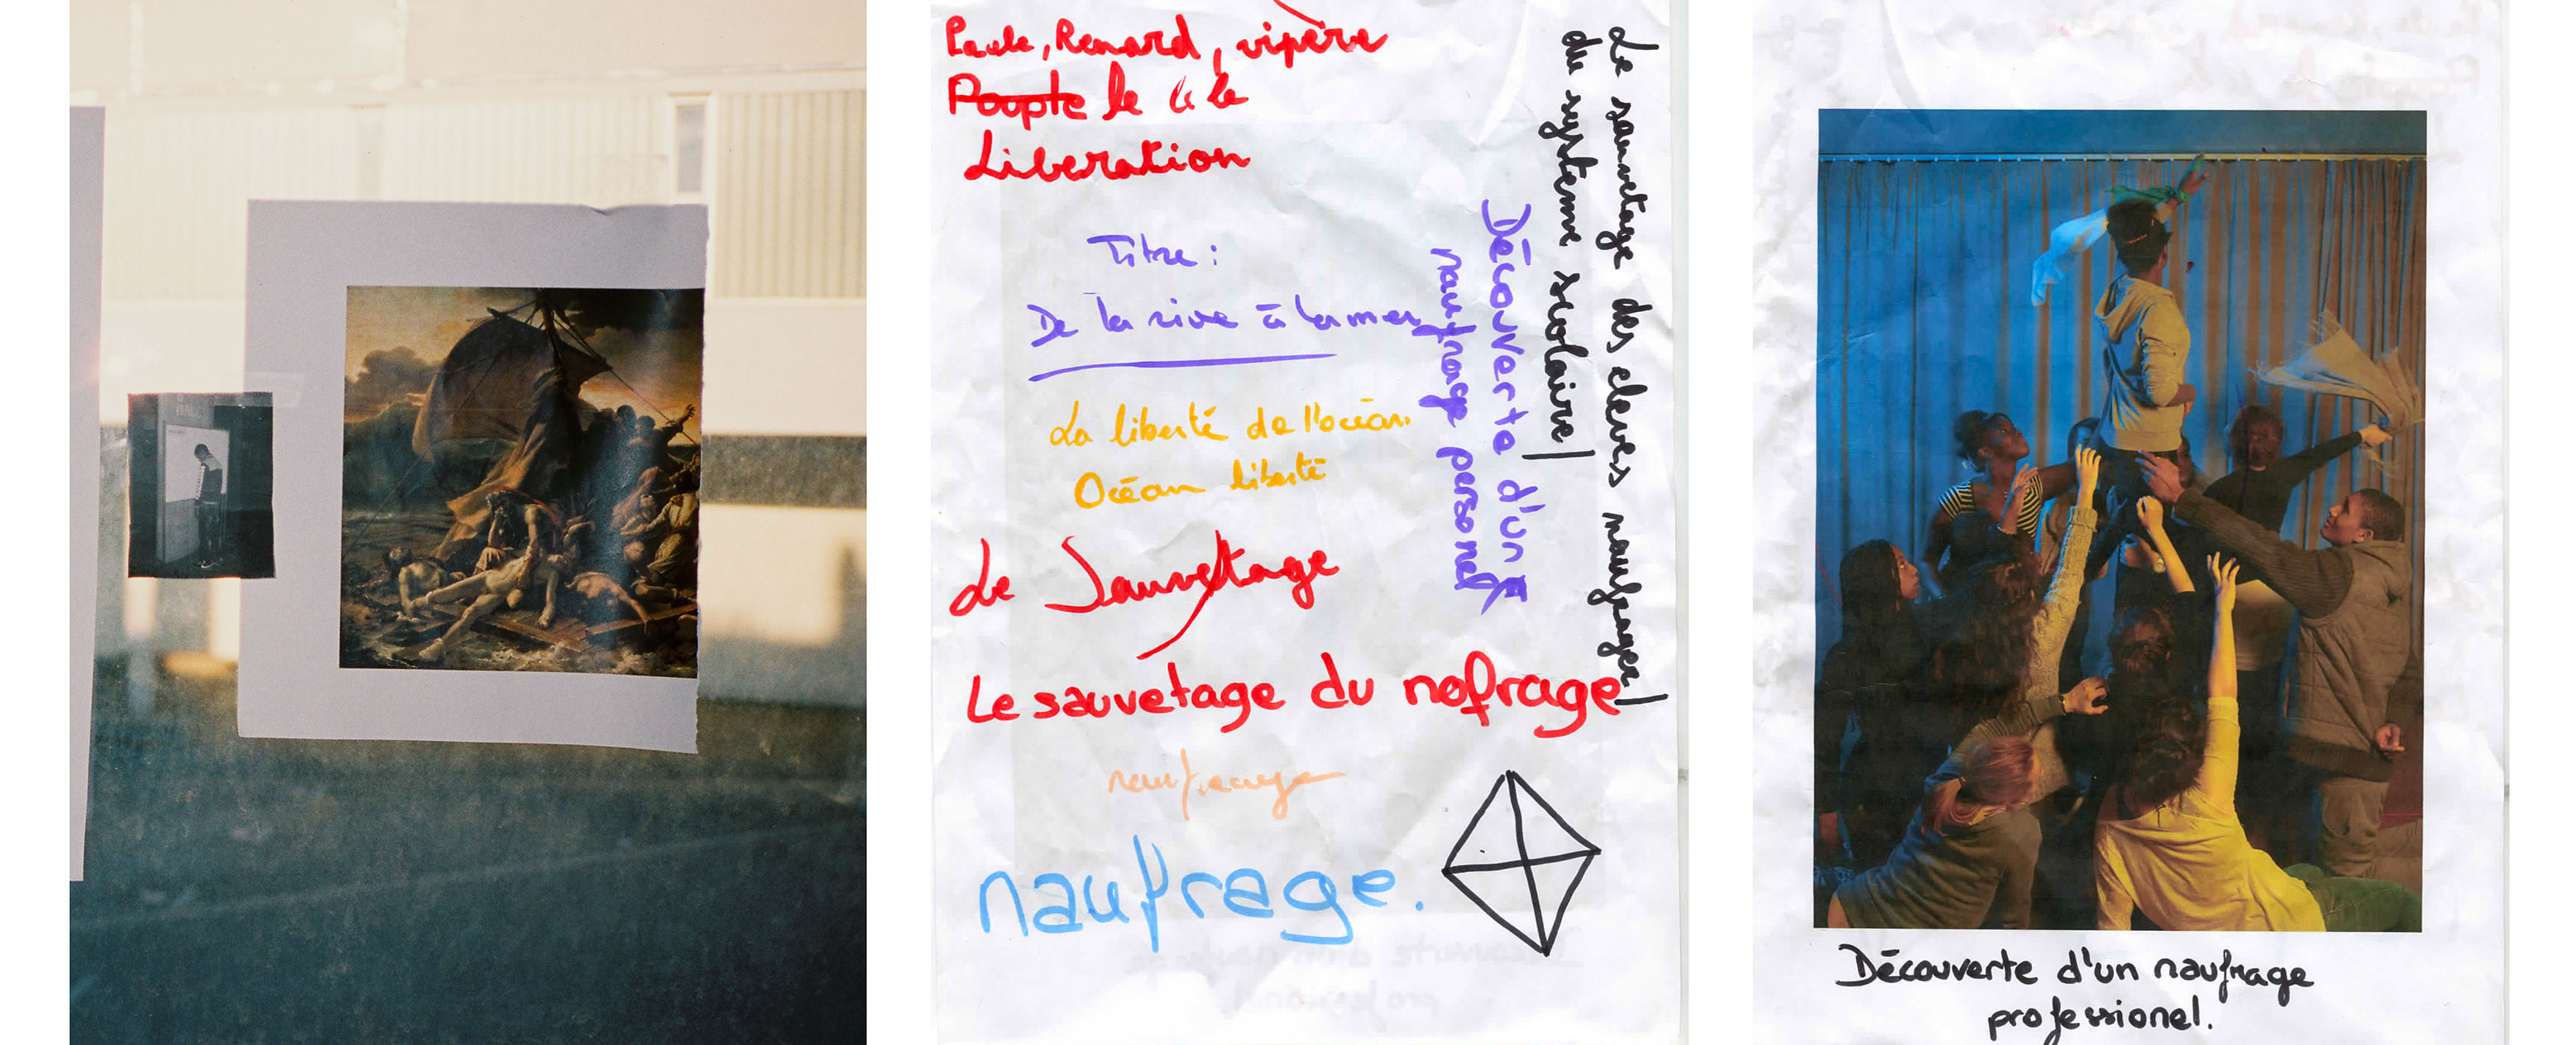 Poule, Renard, vipère
Poupte le la le
Liberation
Titre :
De la rive à la mer
La liberté de l'océan
Océan liberté
Le Sauvetage
Le sauvetage du nofrage
naufrage
naufrage.
Découverte d'un
naufrage personel
Le sauvetage des eleves naufrager
du systeme scolaire
Découverte d'un naufrage
professionel.